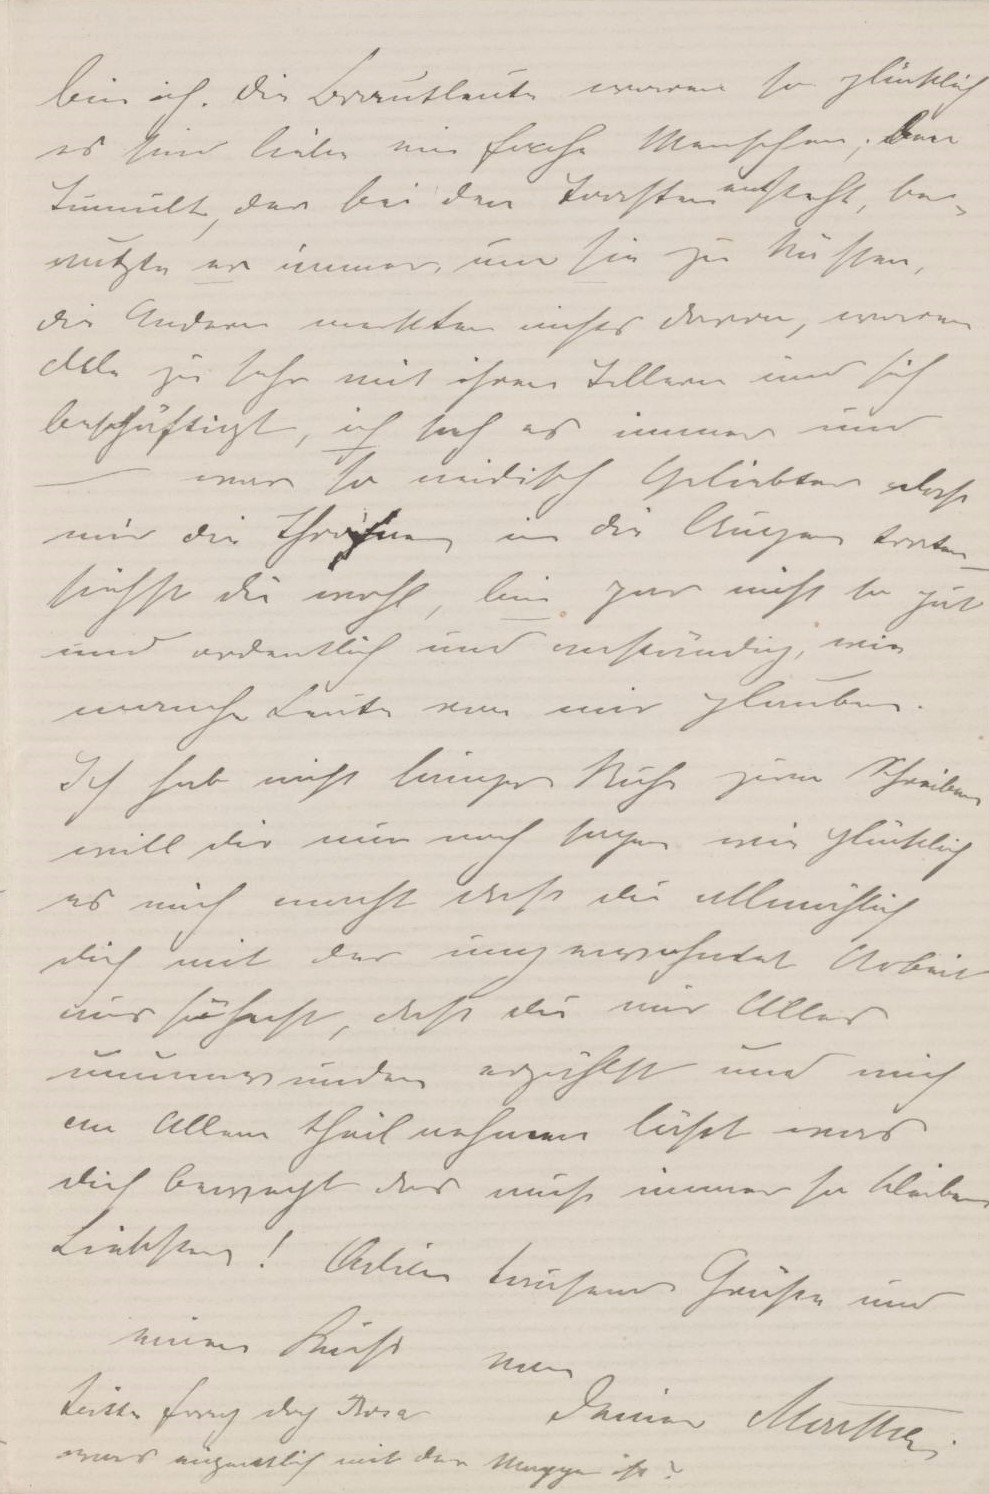 bin ich. Die Brautleute waren so glücklich
es sind liebe nie freche Menschen, den
Tumult, der bei den Toasten entsteht, be-
nutzte er immer, um sie zu küssen,
die Andern merkten nichts davon, waren
alle zu sehr mit ihren Tellern und sich
beschäftigt, ich sah es immer und
— war so neidisch Geliebter dass
mir die Thränen in die Augen traten –
siehst Du wohl, bin gar nicht so gut
und ordentlich und verständig, wie
manche Leute von mir glauben.
Ich hab nicht länger Ruhe zum Schreiben
will dir nur noch sagen wie glücklich
es mich macht dass du allmählich
dich mit der ungewohnten Arbeit
aussöhnst, dass du mir Alles
unumwunden erzählst und mich
an Allem theil nehmen läßt was
dich bewegt das muß immer so bleiben
Liebster! Adieu tausend Grüße und
einen Kuß von
Deiner Marthe
bitte frag doch Rosa
was eigentlich mit dem Magen ist?